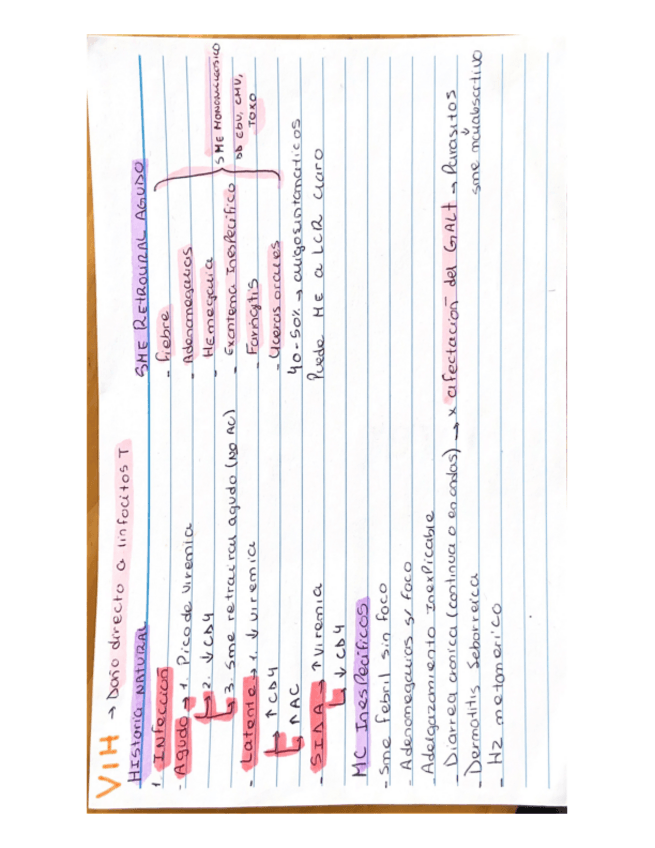 VIH → Daño directo a linfocitos T
Historia NATURAL
1. INfección
- Agudo → 1. Pico de viremia
→ 2. ↓ CD4
→ 3. Sme retroviral agudo (NO AC)
- Latente → 1. ↓ viremia
→ ↑ CD4
→ ↑ AC
- SIDA → ↑ Viremia
→ ↓ CD4
SME RETROVIRAL AGUDO
- Fiebre
- Adenomegalias
- Hemegalia
- Exantema Inespecífico
- Faringitis
- Ulceras orales
SME MONONUCLEOSICO
DD EBV, CMV,
TOXO
40-50% → oligosintomaticos
Puede ME a LCR claro
MC Inespecíficos
- Sme febril sin foco
- Adenomegalias s/ foco
- Adelgazamiento Inexplicable
- Diarrea cronica (continua o en ondas) → x afectación del GALT → Parasitos
↓
sme malabsortivo
- Dermatitis Seborreica
- HZ metamerico